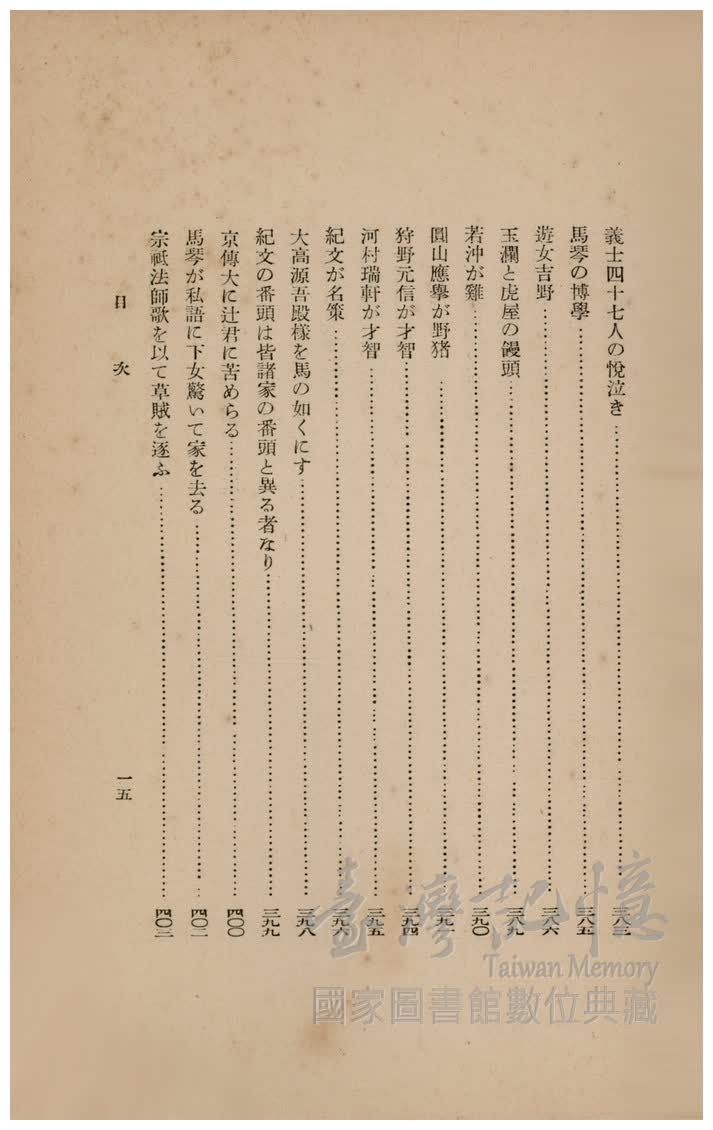 義士四十七人の悅泣き……三八三
馬琴の博學……三八五
遊女吉野……三八六
玉瀾と虎屋の饅頭……三八九
若沖が雞……三九〇
圓山應擧が野猪……三九一
狩野元信が才智……三九四
河村瑞軒が才智……三九五
紀文が名策……三九六
大高源吾殿樣を馬の如くにす……三九八
紀文の番頭は皆諸家の番頭と異る者なり……三九九
京傳大に辻君に苦めらる……四〇〇
馬琴が私語に下女驚いて家を去る……四〇二
宗祗法師歌を以て草賊を逐ふ……四〇三
目次
一五
臺灣記憶
Taiwan Memory
國家圖書館數位典藏